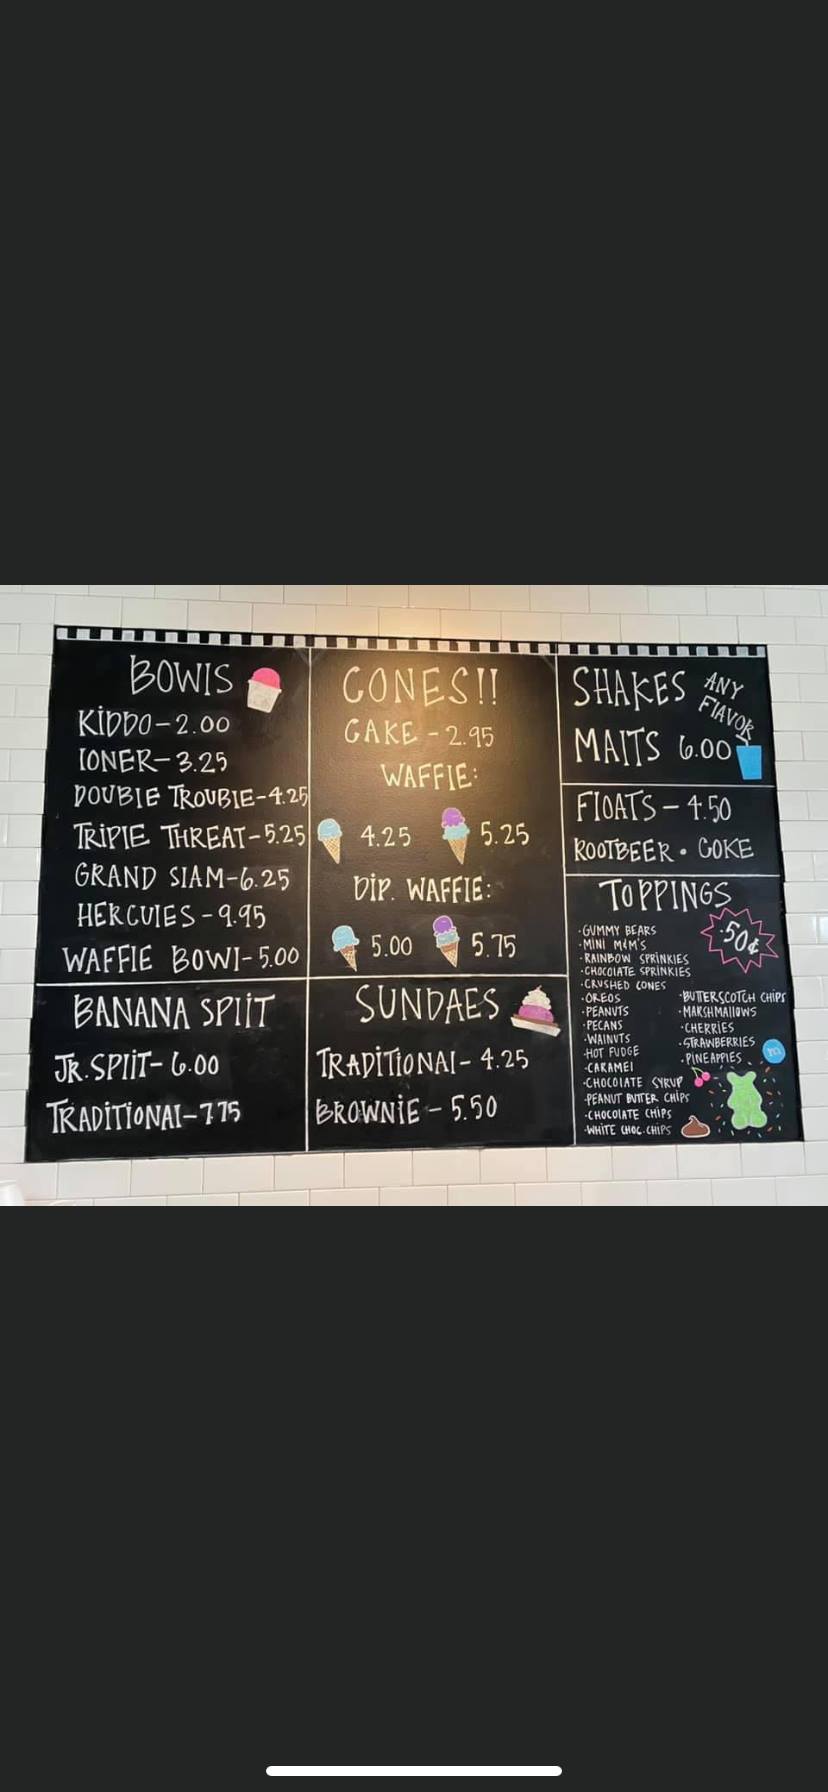 BOWlS
KiDDO-2.00
lONER-3.25
DOUBlE TROUBlE-4.25
TRiPlE THREAT-5.25
GRAND SlAM-6.25
HERCUlES-9.95
WAFFlE BOWl-5.00
BANANA SPlIT
JR. SPlIT-6.00
TRADiTiONAl-7.75
CONES!!
CAKE-2.95
WAFFlE:
4.25 5.25
DiP. WAFFlE:
5.00 5.75
SUNDAES
TRADiTiONAl-4.25
BROWNiE-5.50
SHAKES
MAlTS 6.00
ANY
FlAVOR
FlOATS-4.50
ROOTBEER • COKE
TOPPINGS
.50¢
·GUMMY BEARS
·MINI M&M'S
·RAINBOW SPRINKlES
·CHOCOlATE SPRINKlES
·CRUSHED CONES
·OREOS
·PEANUTS
·PECANS
·WAlNUTS
·HOT FUDGE
·CARAMEl
·CHOCOlATE SYRUP
·PEANUT BUTTER CHIPS
·CHOCOlATE CHIPS
·WHITE CHOC. CHIPS
·BUTTERSCOTCH CHIPS
·MARSHMAllOWS
·CHERRIES
·STRAWBERRIES
·PINEAPPlES
m